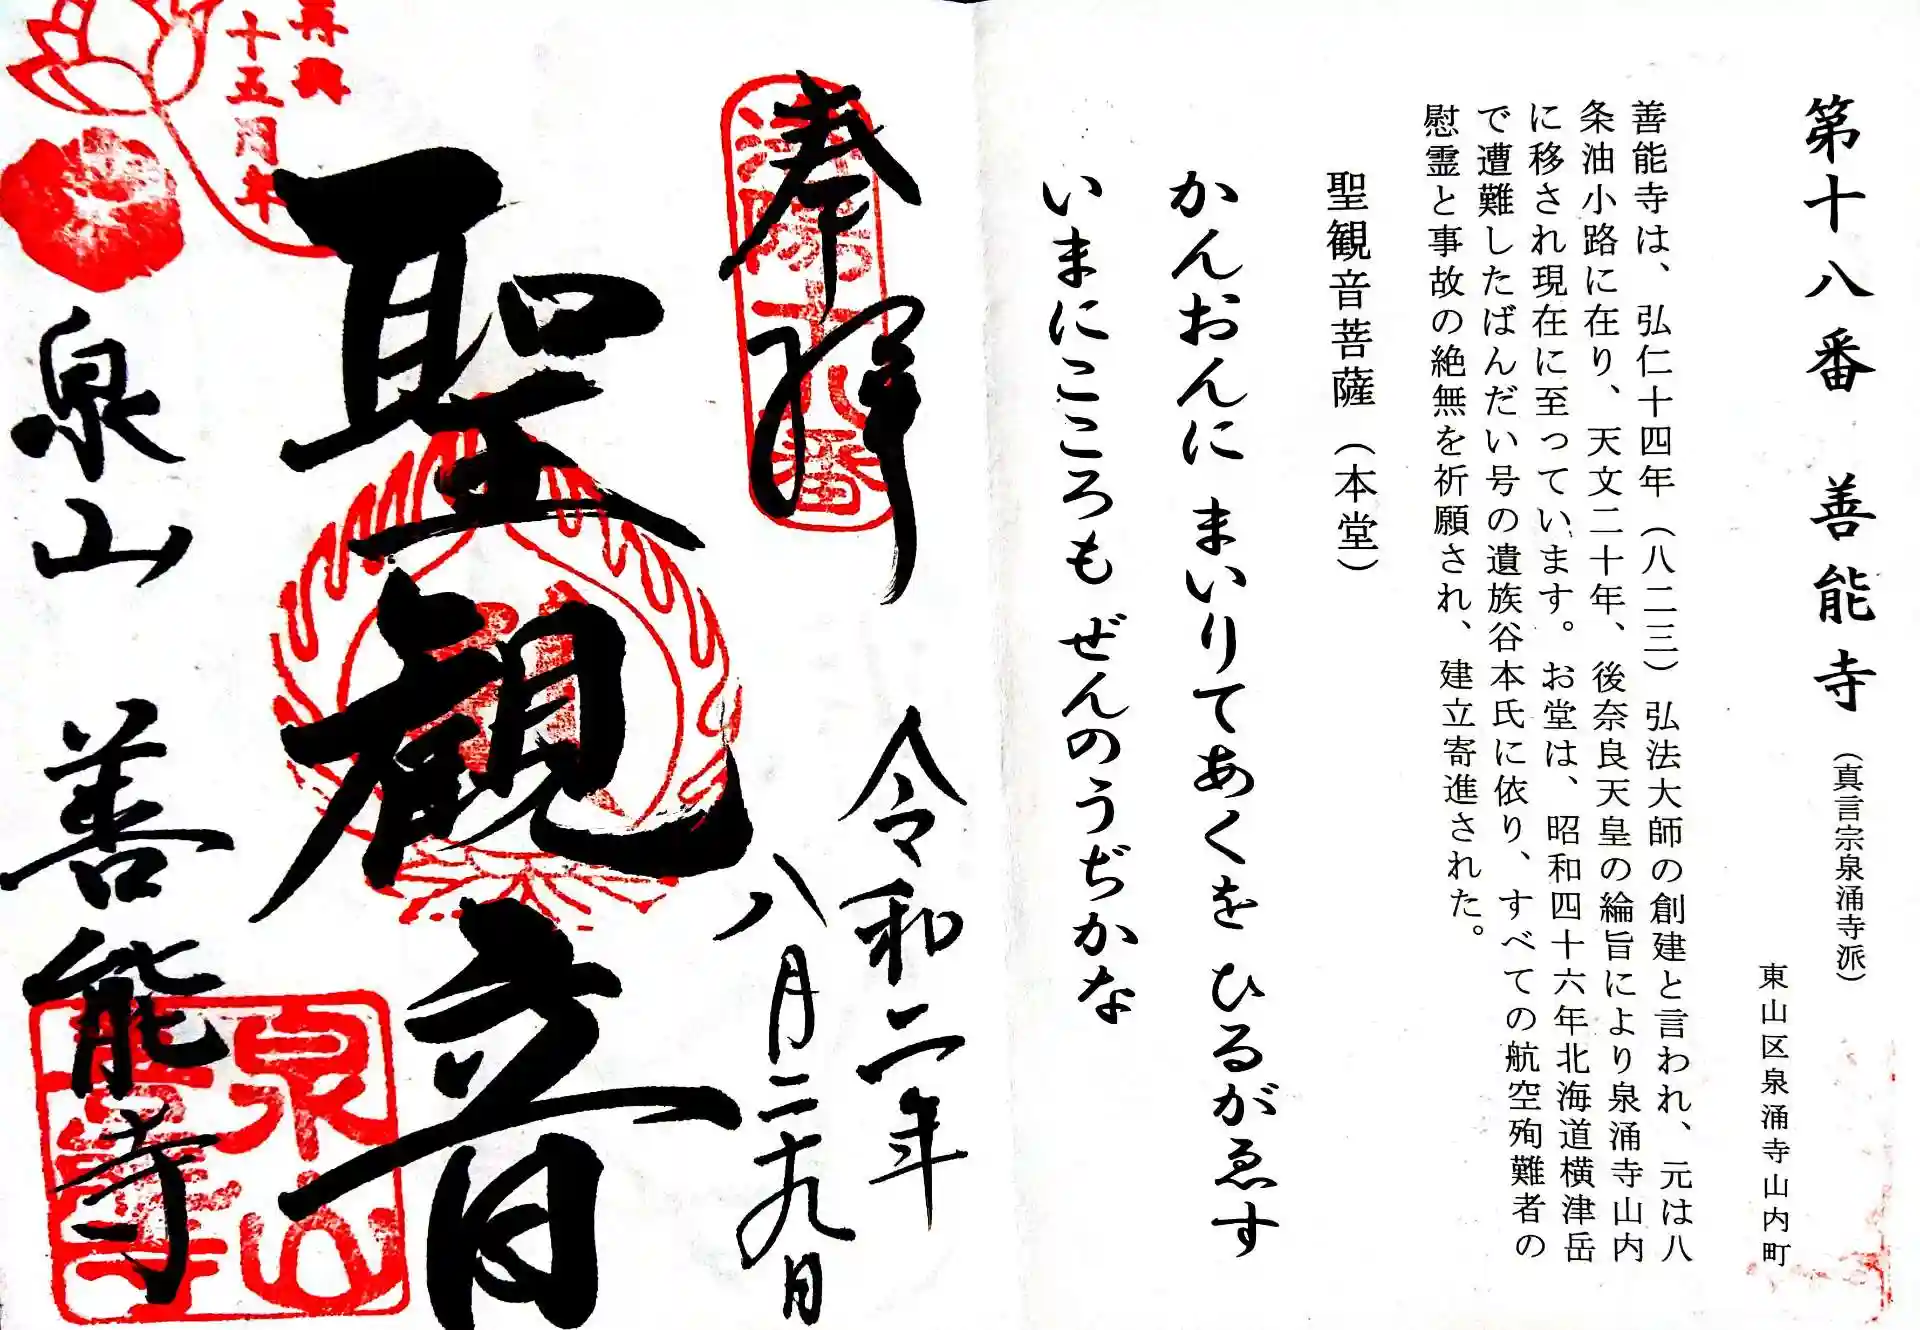 第十八番　善能寺（真言宗泉涌寺派）
東山区泉涌寺山内町
善能寺は、弘仁十四年（八二三）弘法大師の創建と言われ、元は八
条油小路に在り、天文二十年、後奈良天皇の綸旨により泉涌寺山内
に移され現在に至っています。お堂は、昭和四十六年北海道横津岳
で遭難したばんだい号の遺族谷本氏に依り、すべての航空殉難者の
慰霊と事故の絶無を祈願され、建立寄進された。
聖観音菩薩（本堂）
かんおんに まいりてあくを ひるがゑす
いまにこころも ぜんのうぢかな
奉拝
洛陽十八番
令和二年
八月二十九日
聖観音
再興
十五周年
泉山　善能寺
泉山
善能寺